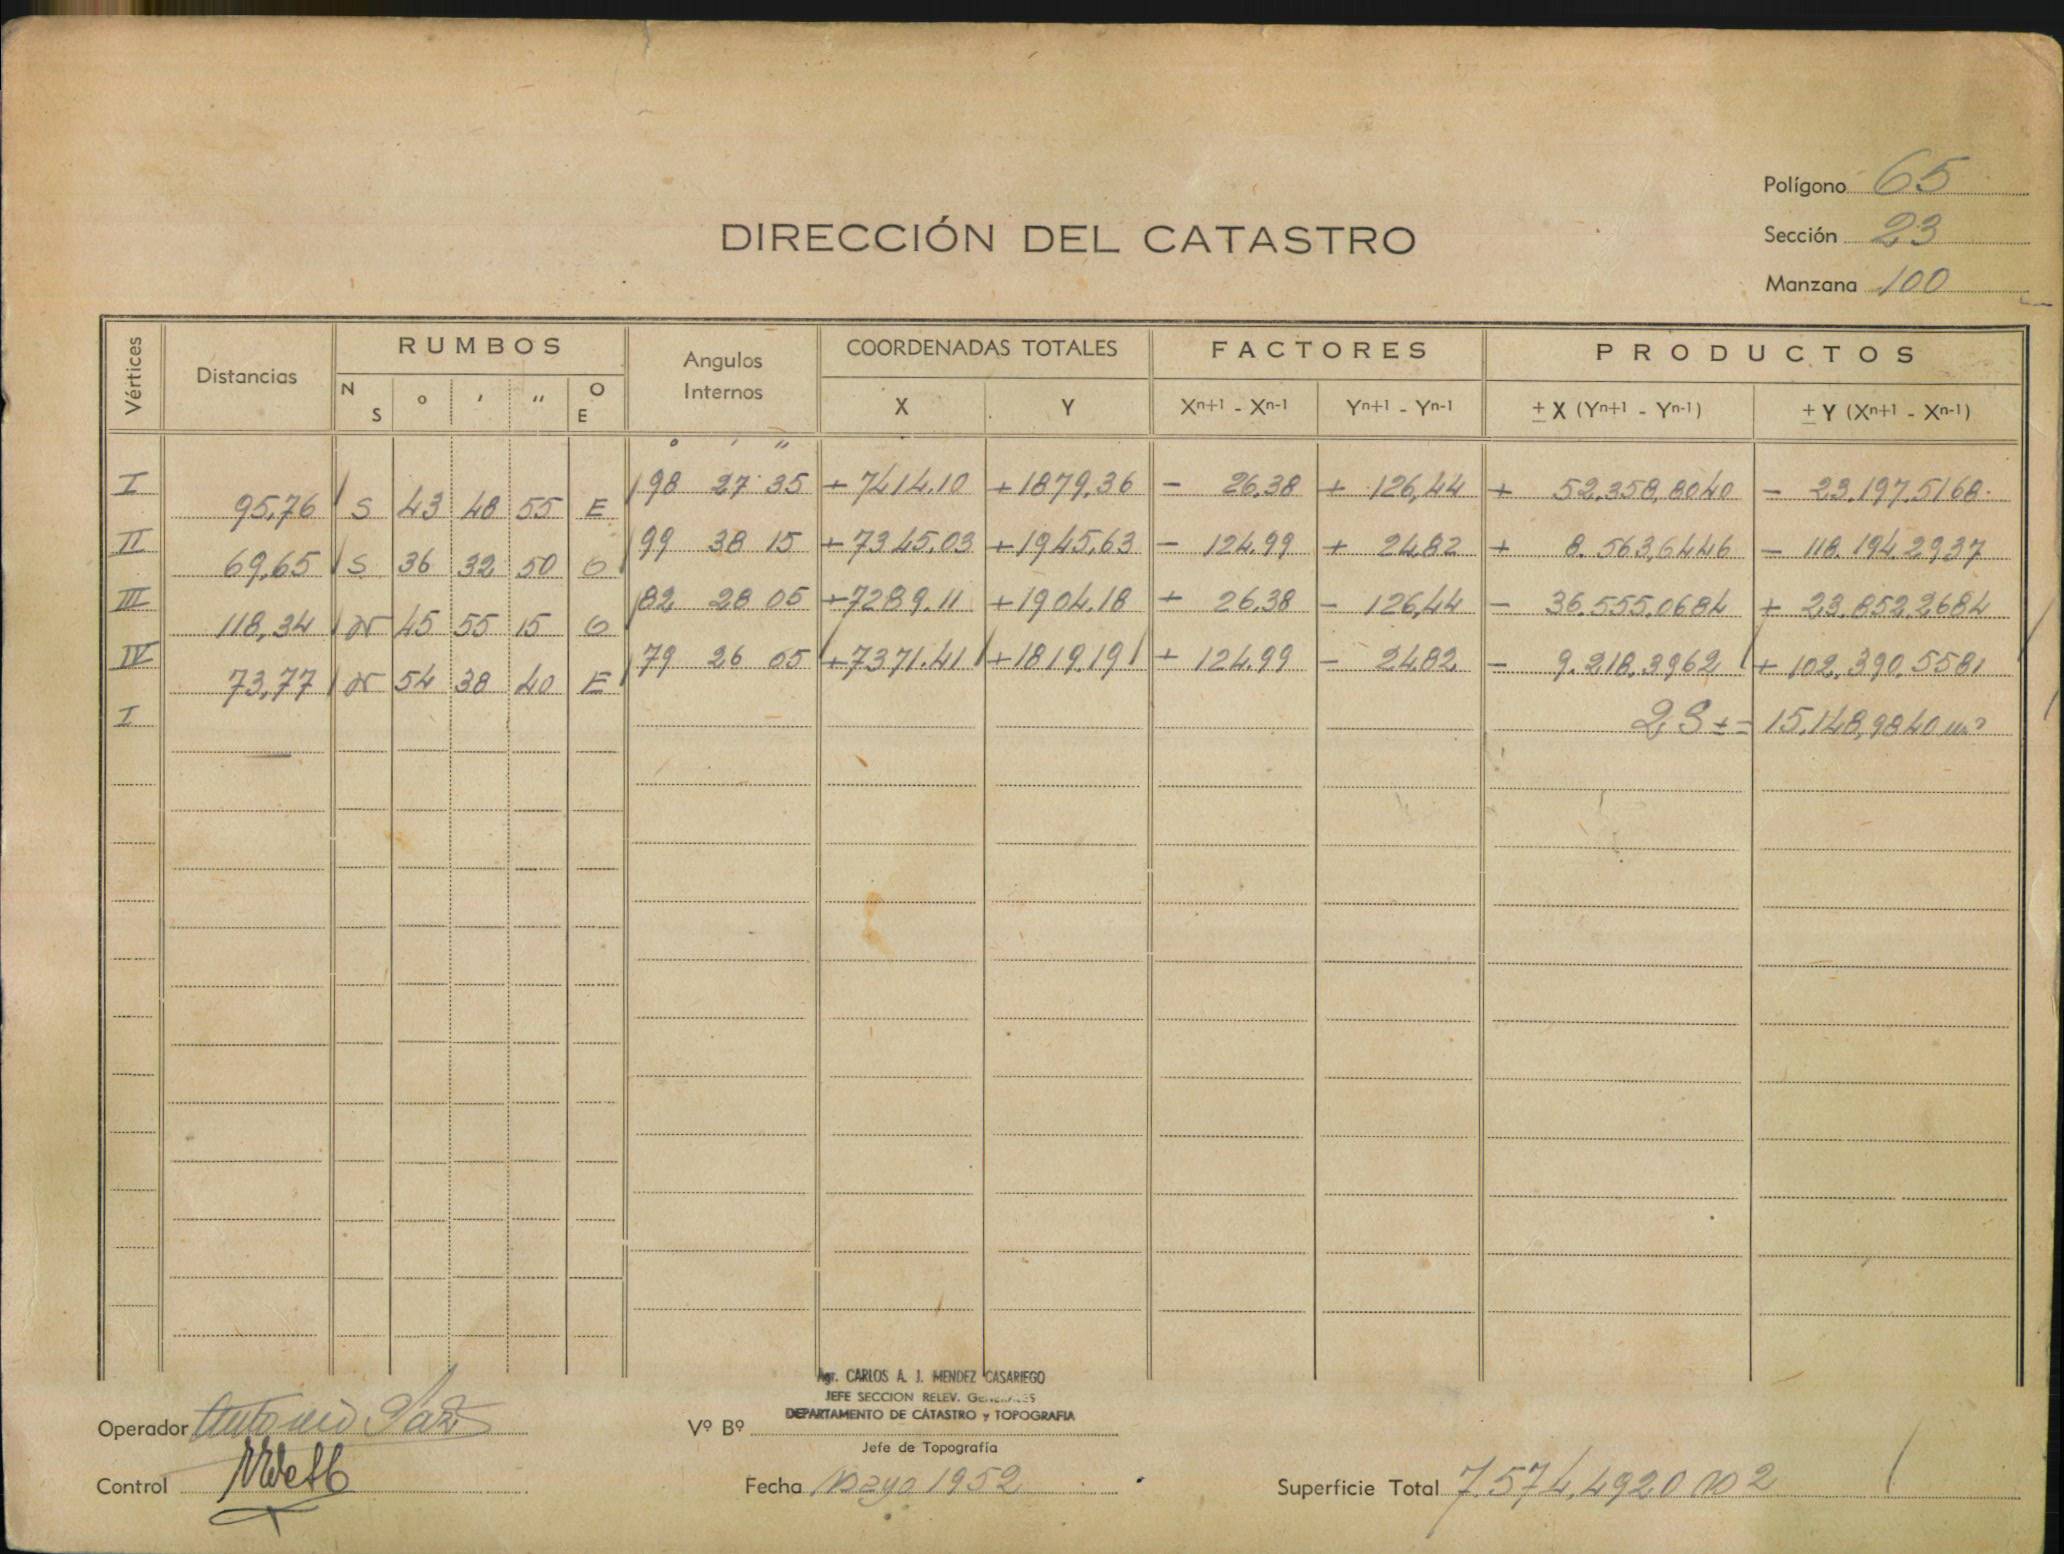 Polígono 65
DIRECCIÓN DEL CATASTRO
Sección 23
Manzana 100
Vértices Distancias RUMBOS Angulos Internos COORDENADAS TOTALES FACTORES PRODUCTOS
N S ° ' " O E X Y Xn+1 - Xn-1 Yn+1 - Yn-1 ± X (Yn+1 - Yn-1) ± Y (Xn+1 - Xn-1)
° ' "
I 98 27 35 +7414.10 +1879,36 - 26,38 + 126,44 + 52.358,8040 - 23.197.5168
95,76 S 43 48 55 E
II 99 38 15 +7345,03 +1945,63 - 124,99 + 24,82 + 8.563,6446 - 118.194.2937
69,65 S 36 32 50 O
III 82 28 05 +7289.11 +1904,18 + 26,38 - 126,44 - 36.555,0684 + 23.852,2684
118,34 N 45 55 15 O
IV 79 26 05 +7371.41 +1819,19 + 124,99 - 24,82 - 9.218,3962 + 102.390,5581
73,77 N 54 38 40 E
I 2S ± = 15.148,9840 m2
Agr. CARLOS A. J. MENDEZ CASARIEGO
JEFE SECCION RELEV. GENERALES
DEPARTAMENTO DE CATASTRO y TOPOGRAFIA
Operador Antonio
Vº Bº
Jefe de Topografía
Control
Fecha Mayo 1952
Superficie Total 7.574,4920 m2